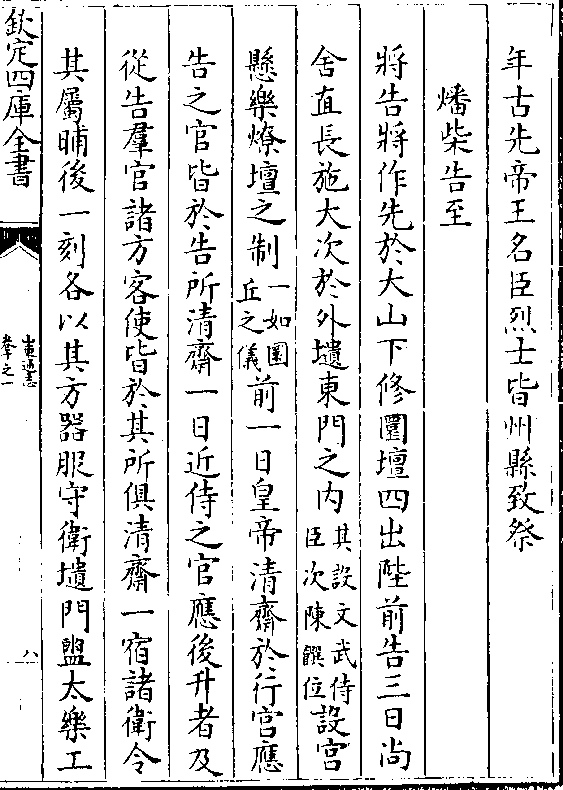 年古先帝王名臣烈士皆州縣致祭
燔柴告至
將告將作先於大山下修圜壇四出陛前告三日尚
舍直長施大次於外壝東門之内其設文武侍臣次陳饌位設宫
懸樂燎壇之制一如圜丘之儀前一日皇帝清齋於行宫應
告之官皆於告所清齋一日近侍之官應後升者及
從告羣官諸方客使皆於其所俱清齋一宿諸衛令
其屬晡後一刻各以其方器服守衛壝門盥太樂工
欽定四庫全書
卷之一
八